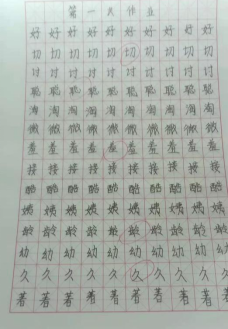 第一天作业
好好好好好好好好好
切切切切切切切切切
讨讨讨讨讨讨讨讨讨
聪聪聪聪聪聪聪聪聪
淘淘淘淘淘淘淘淘淘
微微微微微微微微微
羞羞羞羞羞羞羞羞羞
接接接接接接接接接
酷酷酷酷酷酷酷酷酷
嫌嫌嫌嫌嫌嫌嫌嫌嫌
龄龄龄龄龄龄龄龄龄
幼幼幼幼幼幼幼幼幼
久久久久久久久久久
著著著著著著著著著